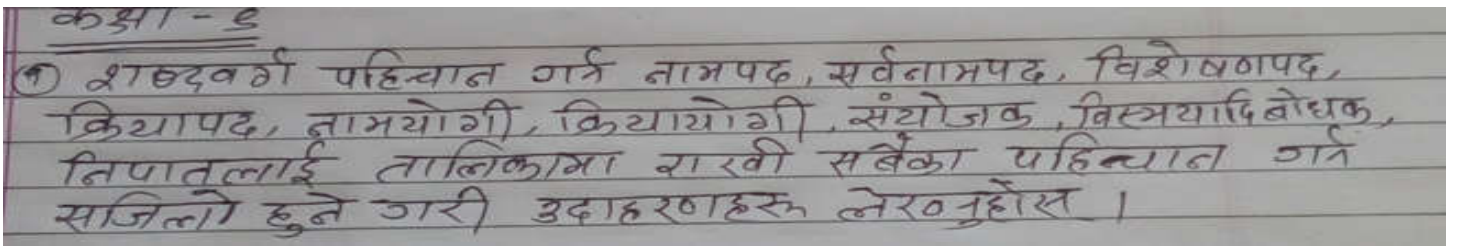 कक्षा - ६
① शब्दवर्ग पहिचान गर्न नामपद, सर्वनामपद, विशेषणपद,
क्रियापद, नामयोगी, क्रियायोगी, संयोजक, विस्मयादिबोधक,
निपातलाई तालिकामा राखी सबैका पहिचान गर्न
सजिलो हुने गरी उदाहरणहरू लेख्नुहोस ।